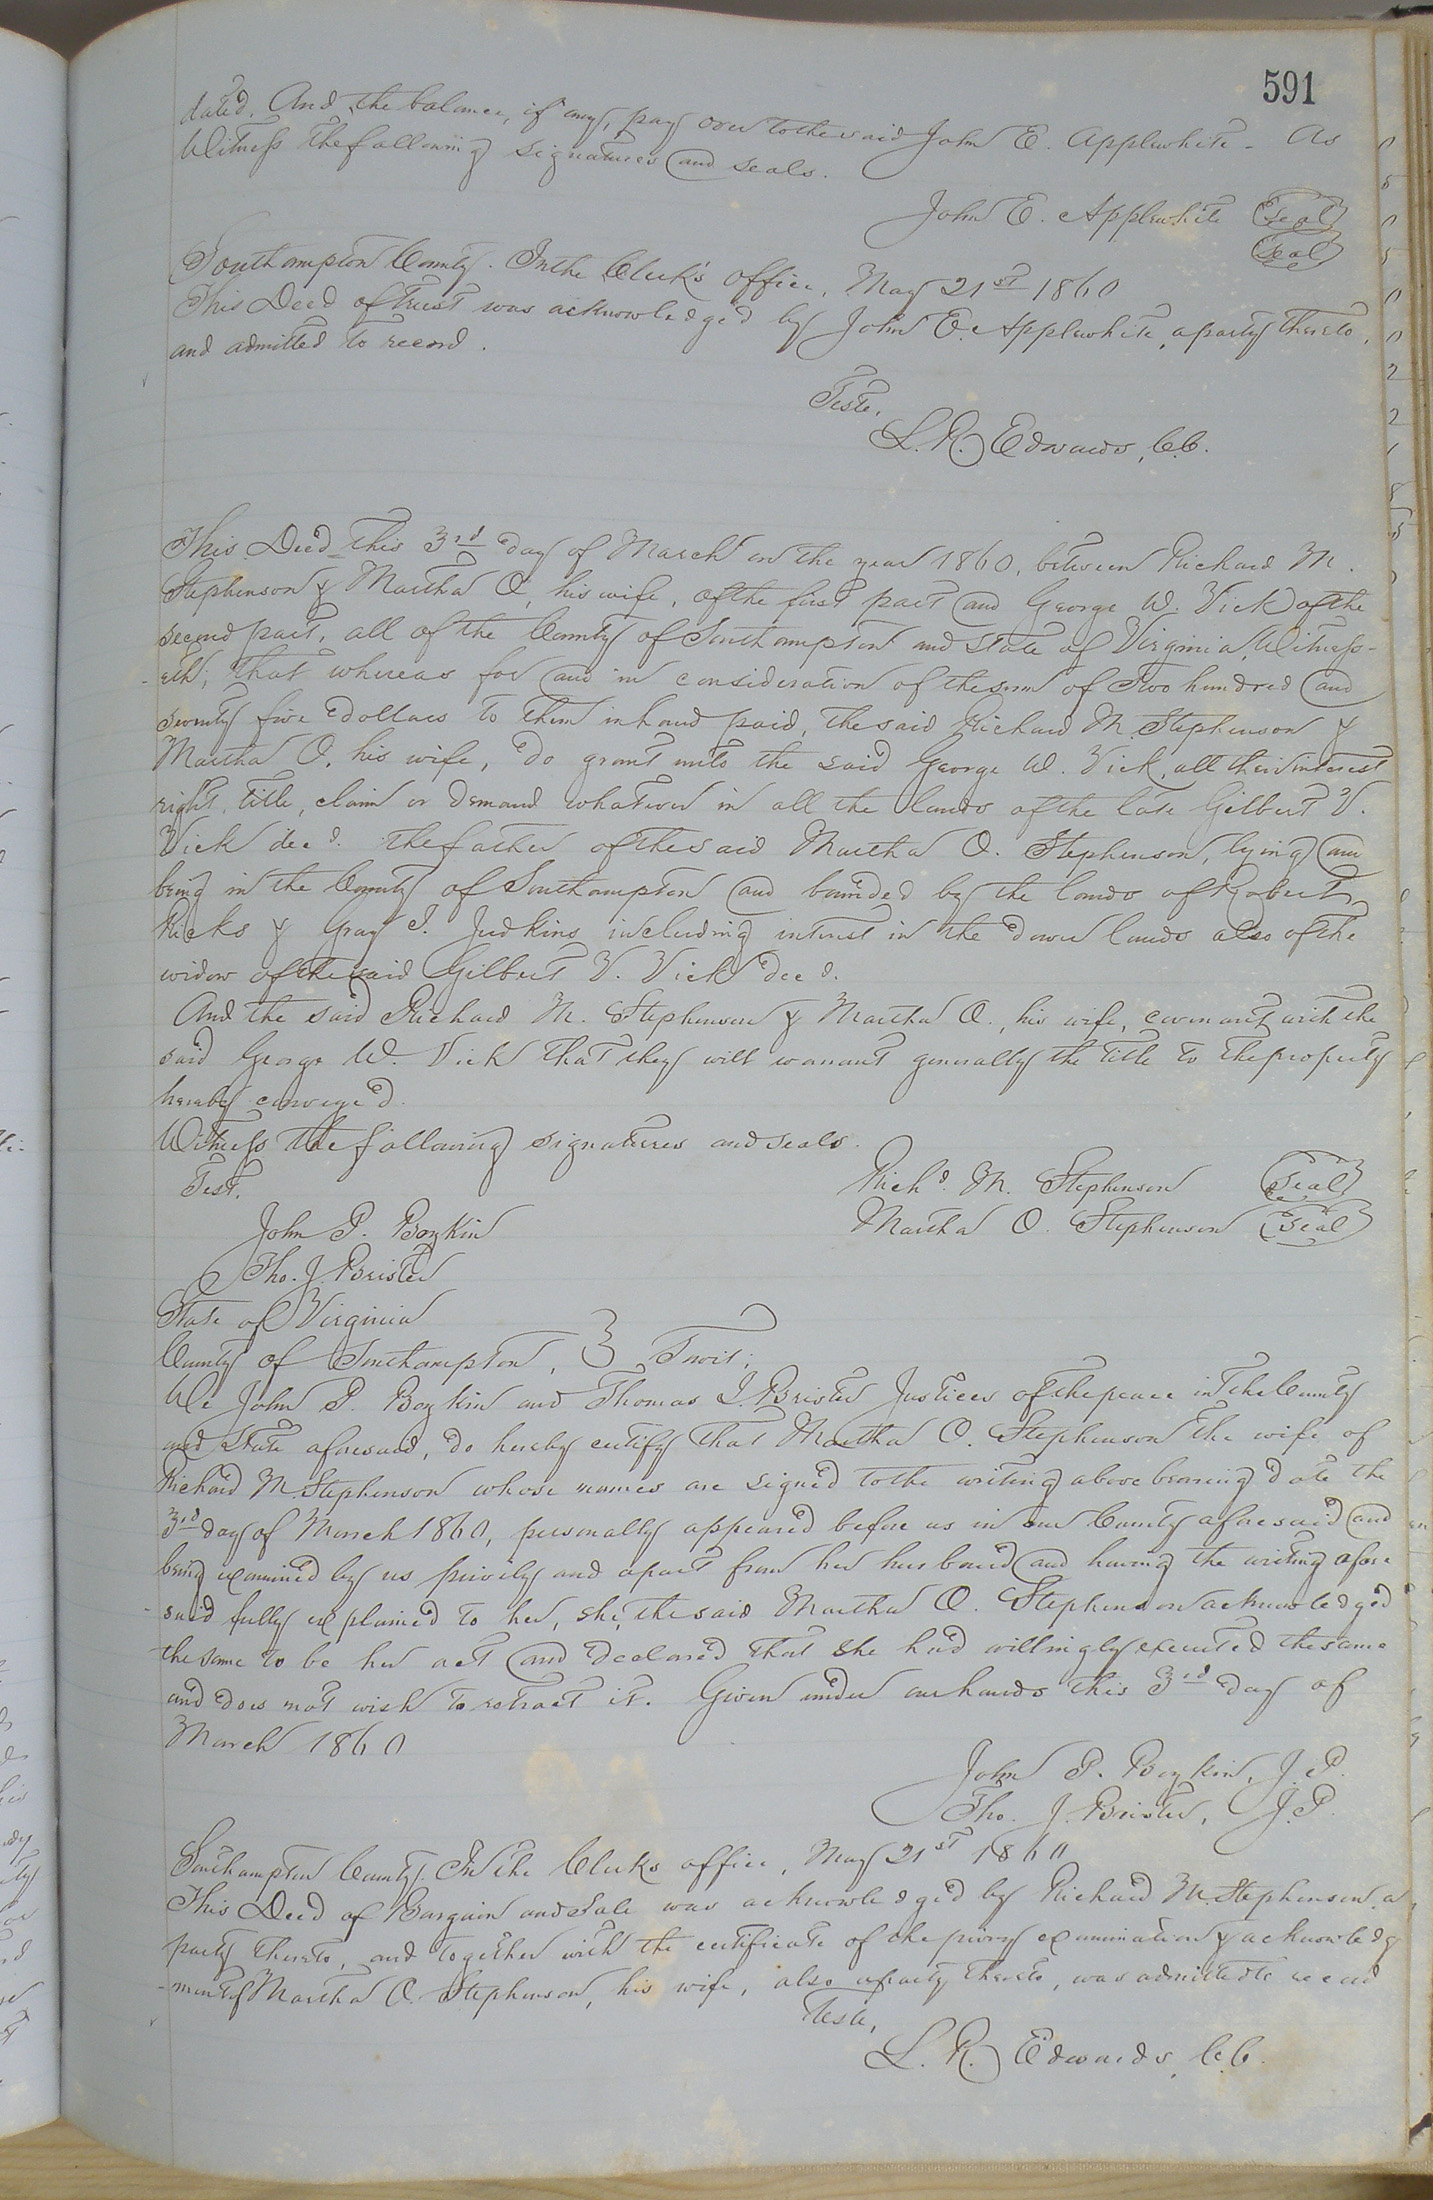 591
dated. And the balance, if any, pay over to the said John E. Applewhite - As
Witness the following signatures and seals.
John E. Applewhite Seal
Seal
Southampton County. In the Clerk's office, May 21st 1860
This Deed of Trust was acknowledged by John E. Applewhite, a party thereto,
and admitted to record.
Teste,
L. R. Edwards, C.C.
This Deed this 3rd day of March in the year 1860, between Richard M.
Stephenson & Martha O, his wife, of the first part and George W. Vick of the
second part, all of the County of Southampton and State of Virginia, Witness-
-eth; that whereas for and in consideration of the sum of Two hundred and
seventy five dollars to them in hand paid, the said Richard M. Stephenson &
Martha O. his wife, do grant unto the said George W. Vick, all their interest
right, title, claim or demand whatever in all the lands of the late Gilbert V.
Vick decd. the father of the said Martha O. Stephenson, lying and
being in the County of Southampton and bounded by the lands of Robert
Ricks & Gray J. Judkins including interest in the dower lands also of the
widow of the said Gilbert V. Vick decd.
And the said Richard M. Stephenson & Martha O., his wife, covenant with the
said George W. Vick that they will warrant generally the title to the property
hereby conveyed.
Witness the following signatures and seals.
Test,
Richd. M. Stephenson Seal
Martha O. Stephenson Seal
John P. Boykin
Tho. J. Brister
State of Virginia
County of Southampton, } Towit:
We John P. Boykin and Thomas J. Brister Justices of the peace in the County
and State aforesaid, do hereby certify that Martha O. Stephenson the wife of
Richard M. Stephenson whose names are signed to the writing above bearing date the
3rd day of March 1860, personally appeared before us in our County aforesaid and
being examined by us privily and apart from her husband and having the writing afore
-said fully explained to her, she, the said Martha O. Stephenson acknowledged
the same to be her act and declared that she had willingly executed the same
and does not wish to retract it. Given under our hands this 3rd day of
March 1860
John P. Boykin, J.P.
Tho. J. Brister, J.P.
Southampton County. In the Clerks office, May 21st 1860
This Deed of Bargain and Sale was acknowledged by Richard M. Stephenson, a
party thereto, and together with the certificate of the privy examination & acknowledg
-ment of Martha O. Stephenson, his wife, also a party thereto, was admitted to record
Teste,
L. R. Edwards, C.C.